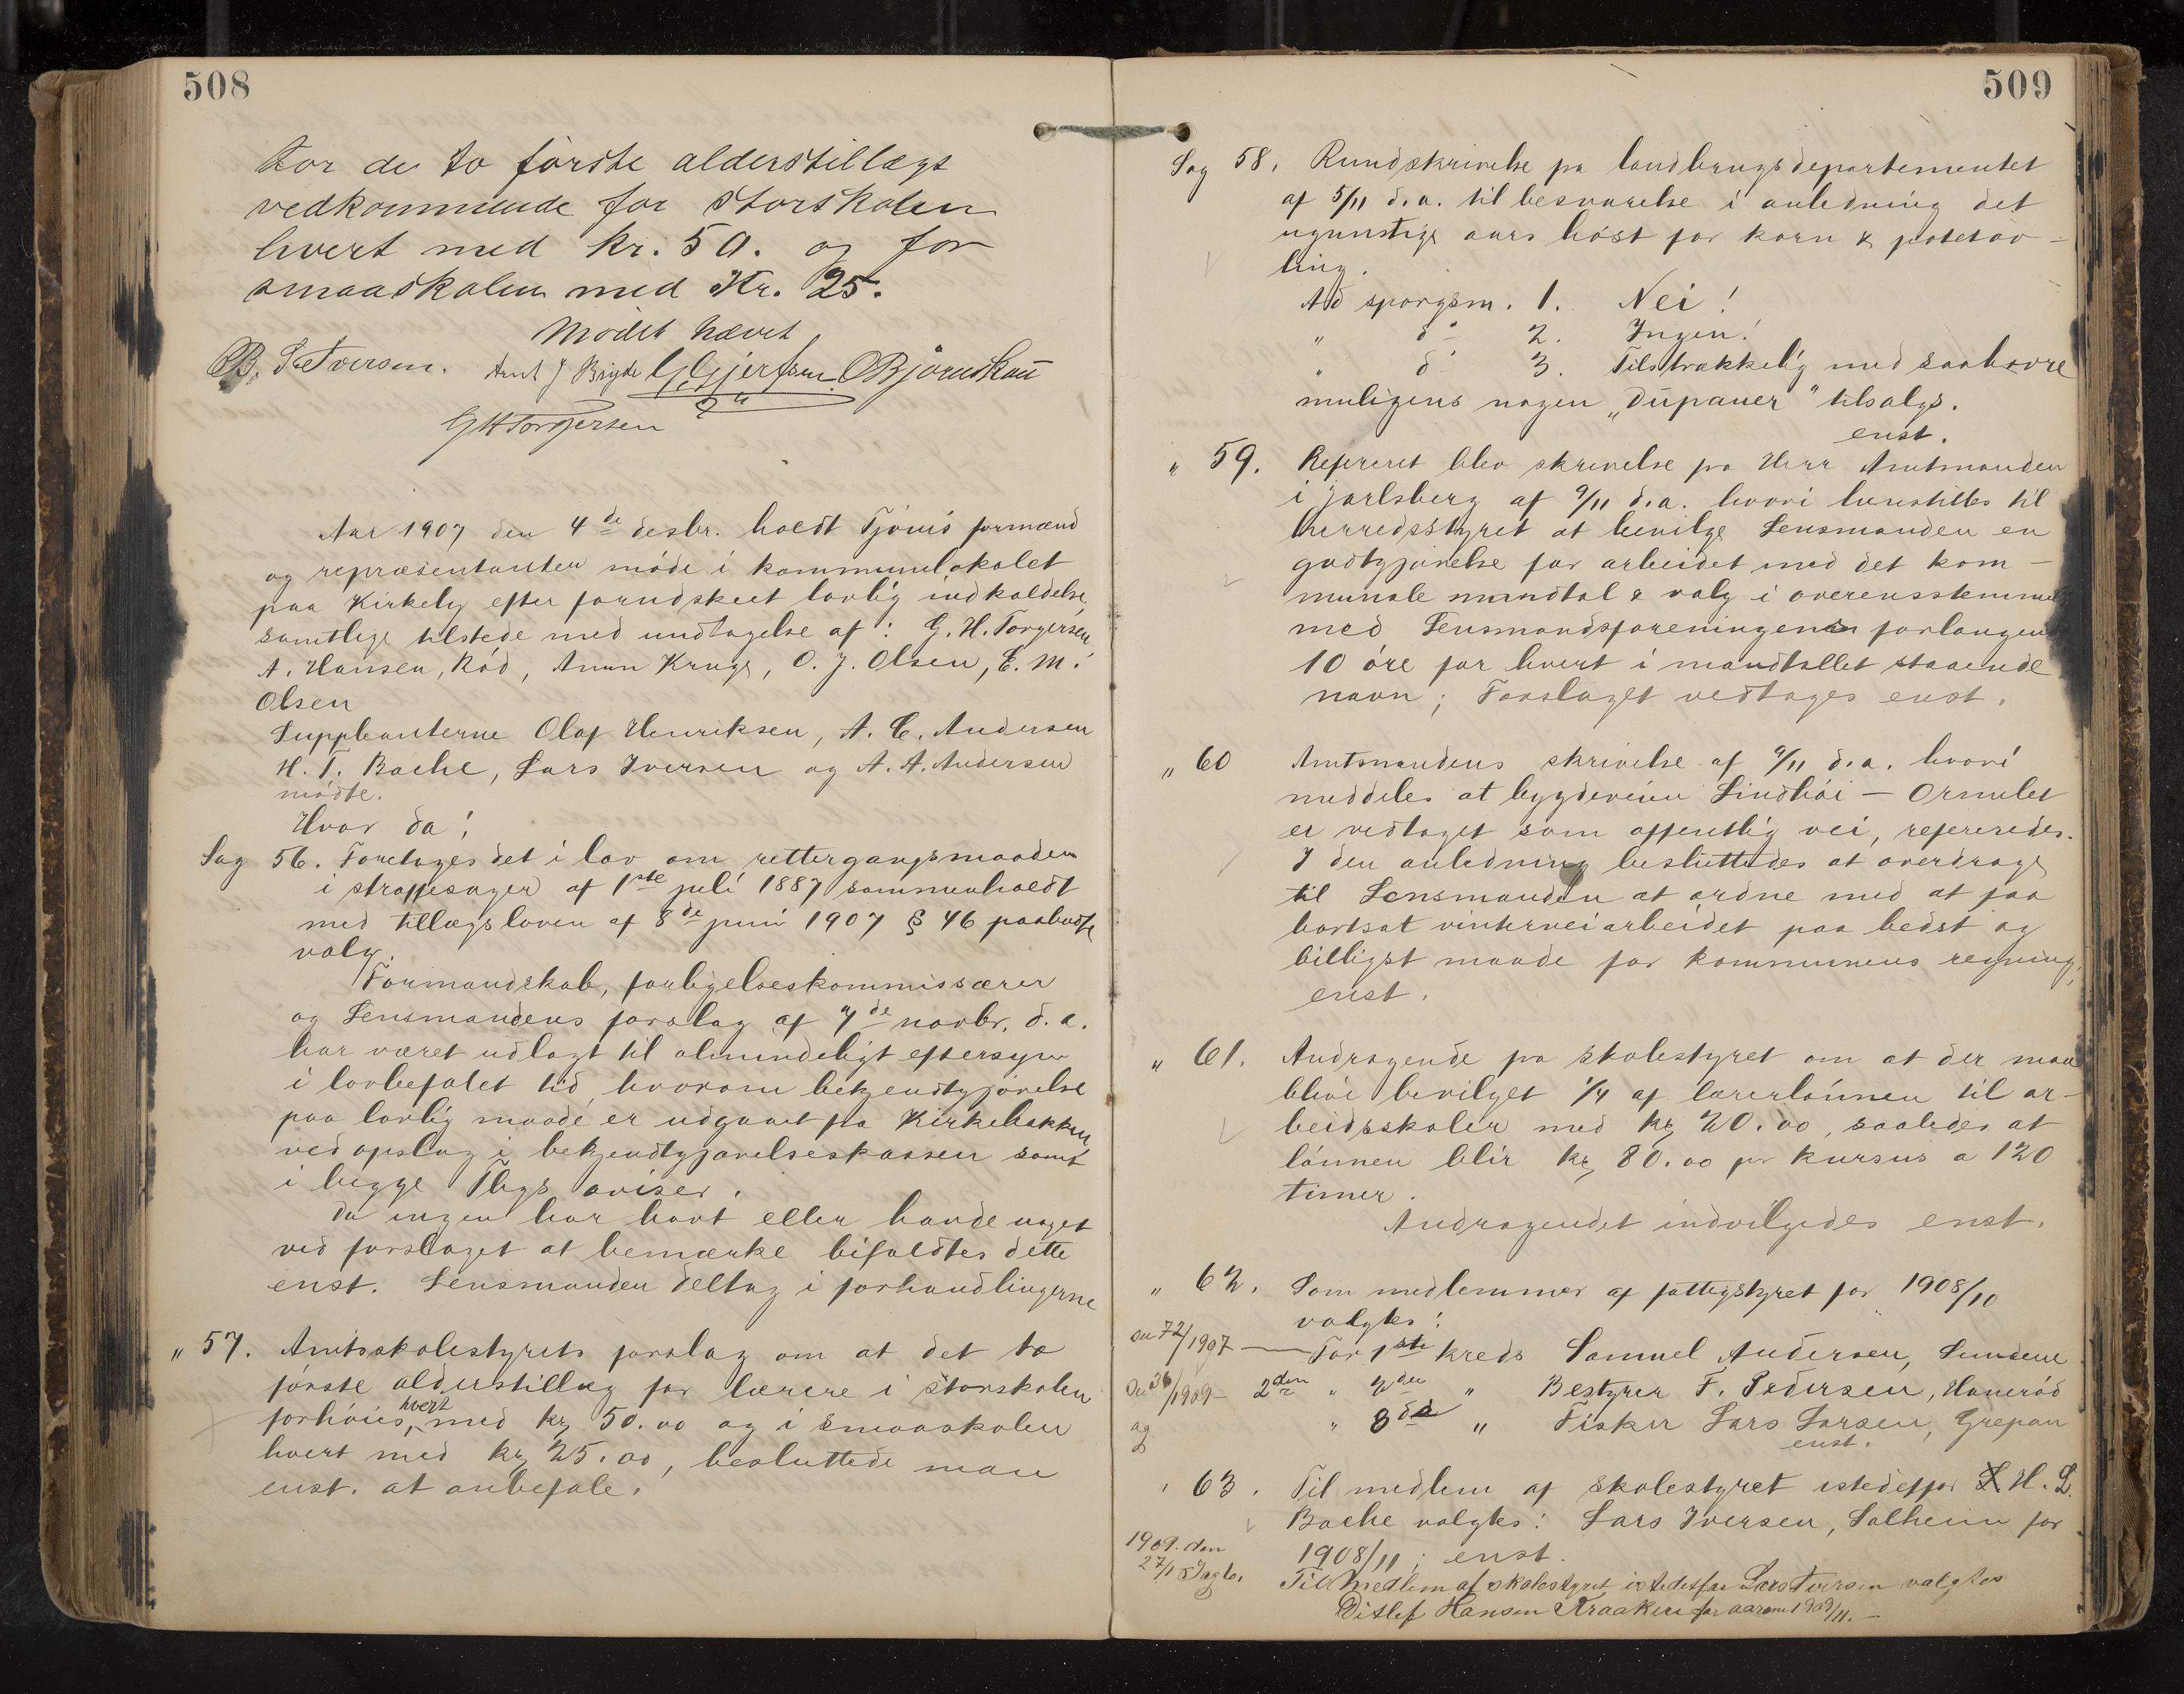 508
for de to første alderstillægs
vedkommende for storskolen
hvert med kr. 50. og for
smaaskolen med Kr. 25.
Mødet hævet
B. S. Iversen. Arnt J Bryde G. Gjertsen O Bjørnskau
G H Torgersen
Aar 1907 den 4de desbr. holdt Tjømø formænd
og repræsentanter møde i kommunelokalet
paa Kirkely efter forudskeet lovlig indkaldelse
samtlige tilstede med undtagelse af: G. H. Torgersen,
A. Hansen, Rød, Anun Kruge, O. J. Olsen, E. M.
Olsen
Suppleanterne Olaf Henriksen, A. C. Andersen
H. T. Bache, Lars Iversen og A. A. Andersen
mødte.
Hvor da:
Sag 56. Foretoges det i lov om rettergangsmaaden
i straffesager af 1ste juli 1887 sammenholdt
med tillægsloven af 8de juni 1907 § 46 paabudte
valg.
Formandskab, forligelseskommissærer
og Lensmandens forslag af 7de novbr. d. a.
har været udlagt til almindeligt eftersyn
i lovbefalet tid, hvorom bekjendtgjørelse
paa lovlig maade er udgaaet fra Kirkebakken
ved opslag i bekjendtgjørelseskassen samt
i begge Tbgs aviser.
Da ingen har havt eller havde noget
ved forslaget at bemærke bifaldtes dette
enst. Lensmanden deltog i forhandlingerne
" 57. Amtsskolestyrets forslag om at det to
første alderstillæg for lærere i storskolen
forhøies hvert med kr 50.00 og i smaaskolen
hvert med kr 25.00, besluttede man
enst. at anbefale.
509
Sag 58. Rundskrivelse fra landbrugsdepartementet
af 5/11 d.a. til besvarelse i anledning det
ugunstige aars høst for korn & potetav-
ling.
Ad spørgsm. 1. Nei!
" do 2. Ingen!
" do 3. Tilstrækkelig med saahavre
muligens nogen „Dupauer" tilsalgs.
enst.
" 59. Refereret blev skrivelse fra Herr Amtmanden
i Jarlsberg af 9/11 d.a. hvori henstilles til
herredsstyret at bevilge Lensmanden en
godtgjørelse for arbeidet med det kom-
munale mandtal & valg i overensstemmelse
med Lensmandsforeningens forlangende
10 øre for hvert i mandtallet staaende
navn; Forslaget vedtages enst.
" 60 Amtmandens skrivelse af 9/11 d.a. hvori
meddeles at bygdeveien Lindhøi - Ormelet
er vedtaget som offentlig vei, refereredes.
I den anledning besluttedes at overdrage
til Lensmanden at ordne med at faa
bortsat vinterveiarbeidet paa bedst og
billigst maade for kommunens regning,
enst.
" 61. Andragende fra skolestyret om at der maa
blive bevilget 1/4 af lærerlønnen til ar-
beidsskoler med kr 20.00, saaledes at
lønnen blir kr 80.00 pr kursus a 120
timer.
Andragendet indvilgedes enst.
" 62. Som medlemmer af fattigstyret for 1908/10
valgtes:
1907 For 1ste kreds Samuel Andersen, Sundene
1909- 2den " 2den " Bestyrer F. Pedersen, Haverød
og " 3de " Fisker Lars Larsen, Grepan
enst.
" 63. Til medlem af skolestyret istedetfor H. L.
Bache valgtes: Lars Iversen, Solheim for
1908/11; enst.
1909. den
27/1 Til Medlem af skolestyret istedetfor Lars Iversen valgtes
Ditlef Hansen Kraakere for aarene 1909/11. -